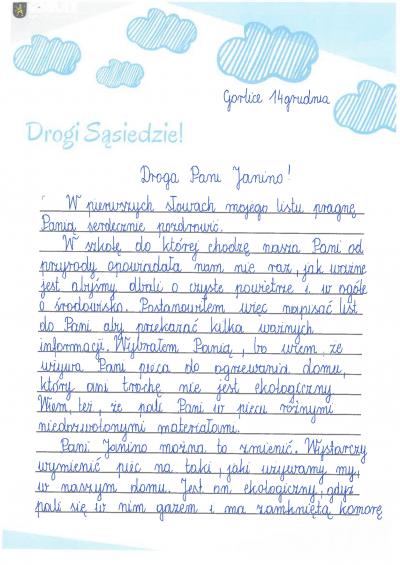 Gorlice 14 grudnia
Drogi Sąsiedzie!
Droga Pani Janino!
W pierwszych słowach mojego listu pragnę
Panią serdecznie pozdrowić.
W szkole do której chodzę nasza Pani od
przyrody opowiadała nam nie raz, jak ważne
jest abyśmy dbali o czyste powietrze i w ogóle
o środowisko. Postanowiłem więc napisać list
do Pani aby przekazać kilka ważnych
informacji. Wybrałem Panią, bo wiem, że
używa Pani pieca do ogrzewania domu,
który ani trochę nie jest ekologiczny.
Wiem, też, że pali Pani w piecu różnymi
niedozwolonymi materiałami.
Pani Janino można to zmienić. Wystarczy
wymienić piec na taki, jaki używamy my,
w naszym domu. Jest on ekologiczny, gdyż
pali się w nim gazem i ma zamkniętą komorę